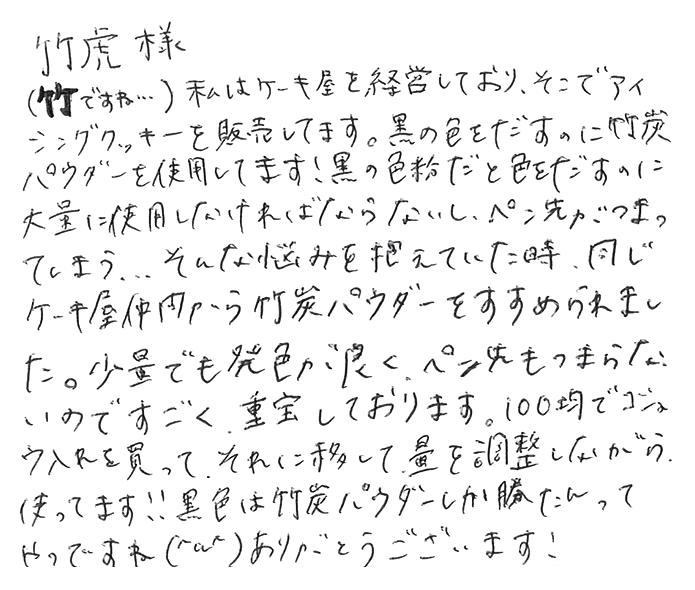 竹虎 様
(竹ですね…) 私はケーキ屋を経営しており、そこでアイ
シングクッキーを販売してます。黒の色をだすのに竹炭
パウダーを使用してます!黒の色粉だと色をだすのに
大量に使用しなければならないし、ペン先がつまっ
てしまう... そんな悩みを抱えていた時、同じ
ケーキ屋仲間から竹炭パウダーをすすめられまし
た。少量でも発色が良く、ペン先もつまらな
いのですごく、重宝しております。100均でコショ
ウ入れを買って、それに移して、量を調整しながら、
使ってます!!黒色は竹炭パウダーしか勝たんって
やつですね(^ω^)ありがとうございます!